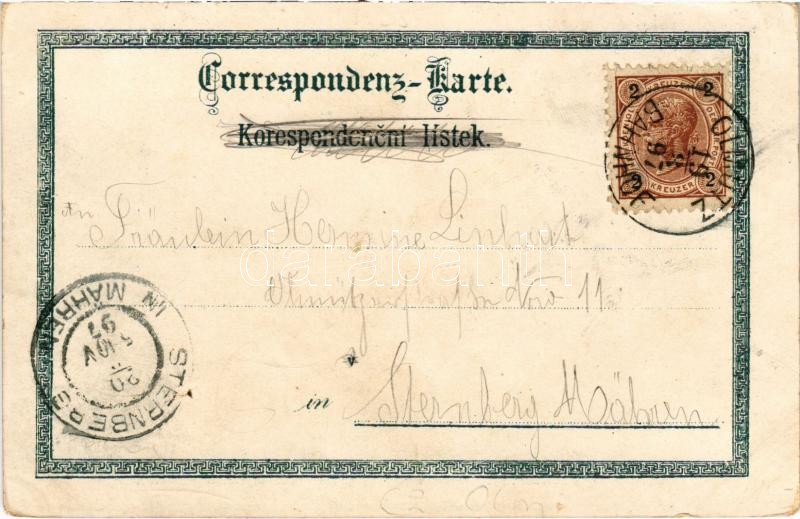 Correspondenz-Karte.
Korespondenční lístek.
2 2
KREUZER
2 2
KREUZER
OLMÜTZ
BAHNHOF
19 3
97
An Fräulein Hermine Linhart
Olmützerstraße Nro 11
in Sternberg Mähren
STERNBERG
IN MÄHREN
20
97
darabanth